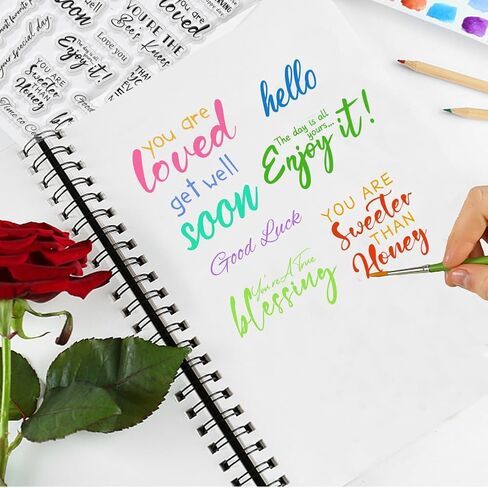 your special day
You are
loved
YOU'RE THE
Bees Knees
Love you
Enjoy it!
YOU ARE
Sweeter
THAN
Honey
Good
you are
loved
hello
get well
soon
The day is all
yours...
Enjoy it!
Good Luck
YOU ARE
Sweeter
THAN
Honey
You're A True
blessing